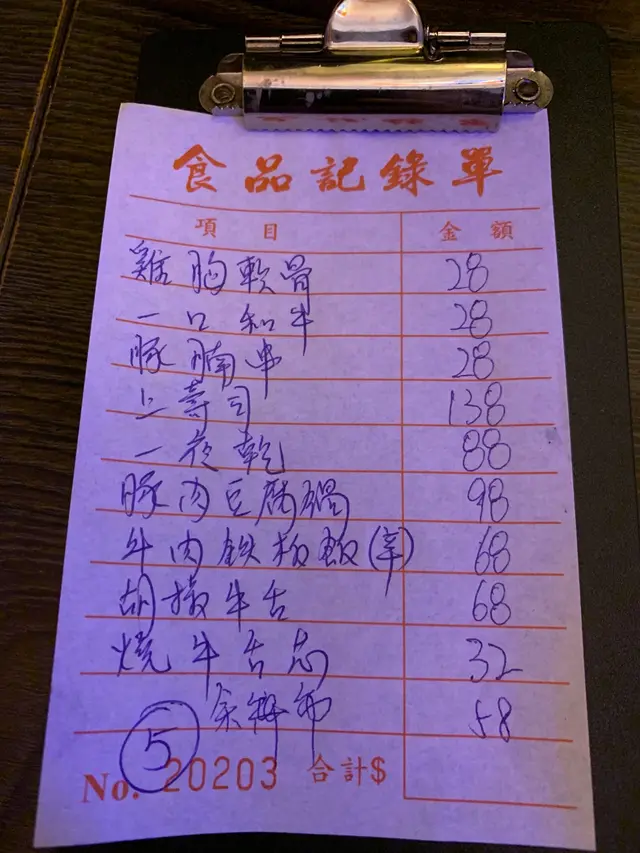 食品記錄單
項目 金額
雞胸軟骨 28
一口和牛 28
豚腩串 28
上壽司 138
一夜乾 88
豚肉豆腐鍋 98
牛肉鉄板飯(辛) 68
胡椒牛舌 68
燒牛舌芯 32
58
5
No. 20203 合計$